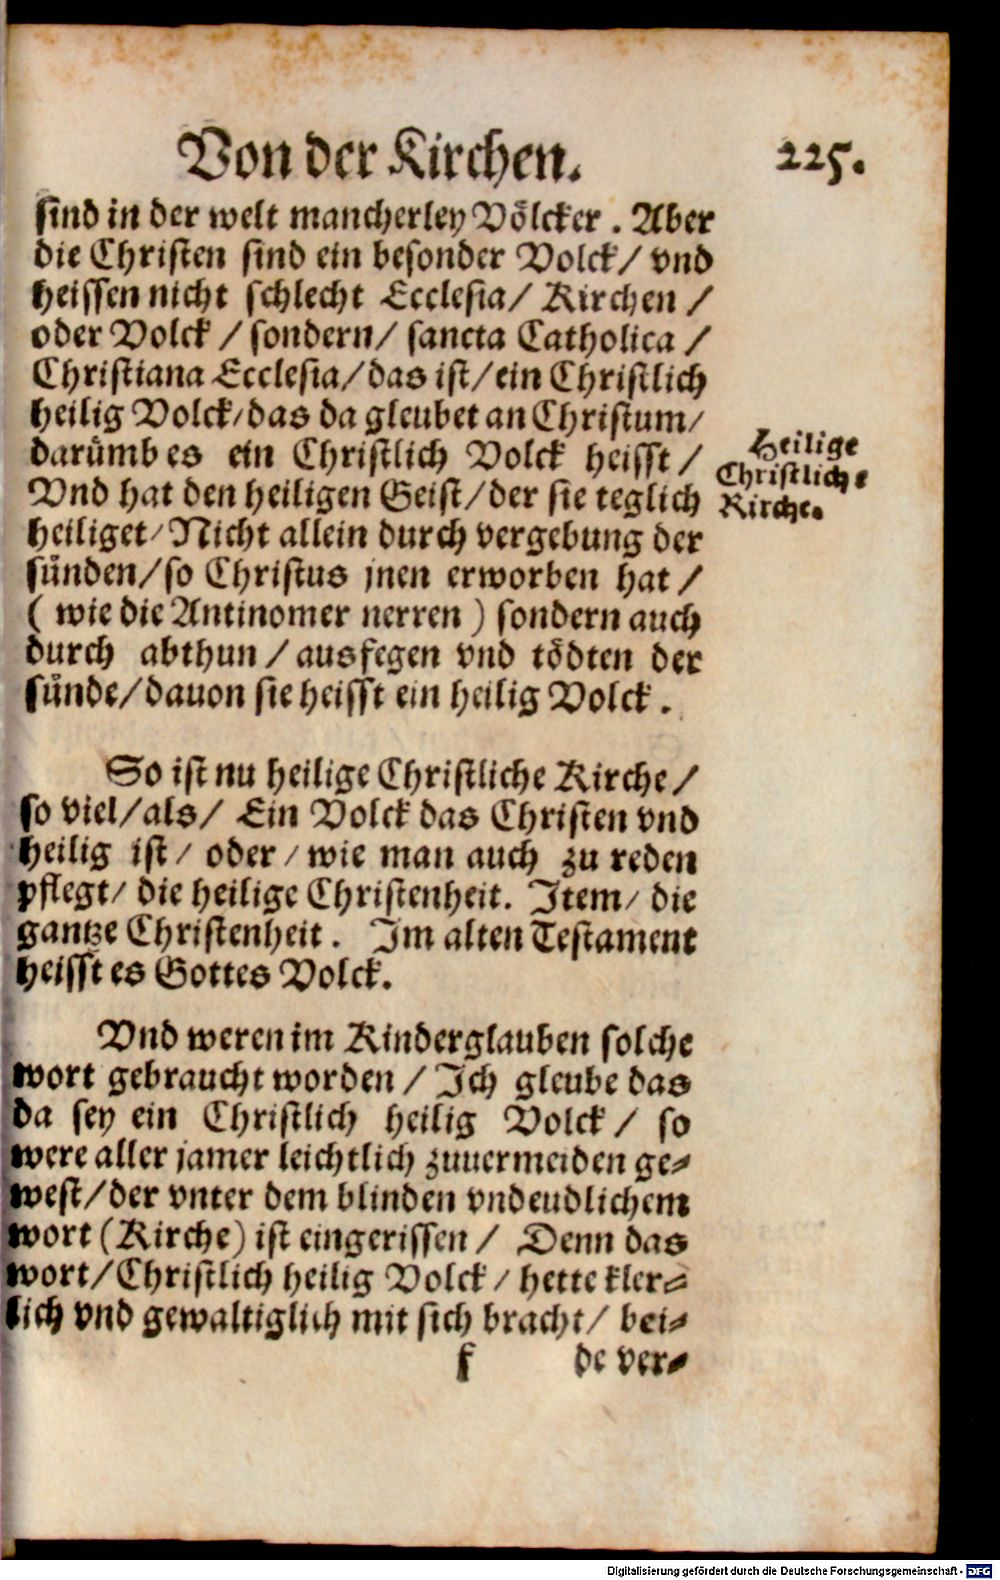 Von der Kirchen. 225.
sind in der welt mancherley Völcker. Aber
die Christen sind ein besonder Volck/ vnd
heissen nicht schlecht Ecclesia/ Kirchen /
oder Volck / sondern/ sancta Catholica /
Christiana Ecclesia/ das ist/ ein Christlich
heilig Volck/ das da gleubet an Christum/
darümb es ein Christlich Volck heisst /
Vnd hat den heiligen Geist/ der sie teglich
heiliget/ Nicht allein durch vergebung der
sünden/ so Christus jnen erworben hat /
( wie die Antinomer nerren ) sondern auch
durch abthun / ausfegen vnd tödten der
sünde/ dauon sie heisst ein heilig Volck .
Heilige
Christliche
Kirche.
So ist nu heilige Christliche Kirche /
so viel/ als/ Ein Volck das Christen vnd
heilig ist / oder / wie man auch zu reden
pflegt/ die heilige Christenheit. Item/ die
gantze Christenheit . Im alten Testament
heisst es Gottes Volck.
Vnd weren im Kinderglauben solche
wort gebraucht worden / Ich gleube das
da sey ein Christlich heilig Volck / so
were aller jamer leichtlich zuuermeiden ge-
west/ der vnter dem blinden vndeudlichem
wort (Kirche) ist eingerissen / Denn das
wort/ Christlich heilig Volck / hette kler-
lich vnd gewaltiglich mit sich bracht/ bei-
f de ver-
Digitalisierung gefördert durch die Deutsche Forschungsgemeinschaft - DFG